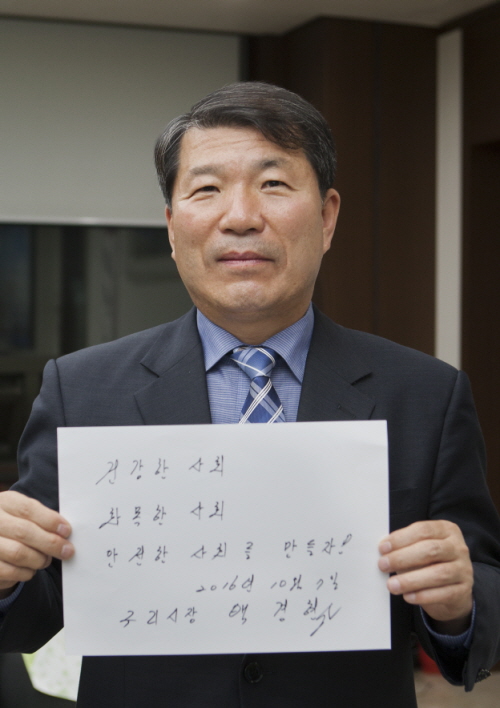 건강한 사회
화목한 사회
안전한 사회를 만들자!
2016년 10월 7일
구리시장 백경현